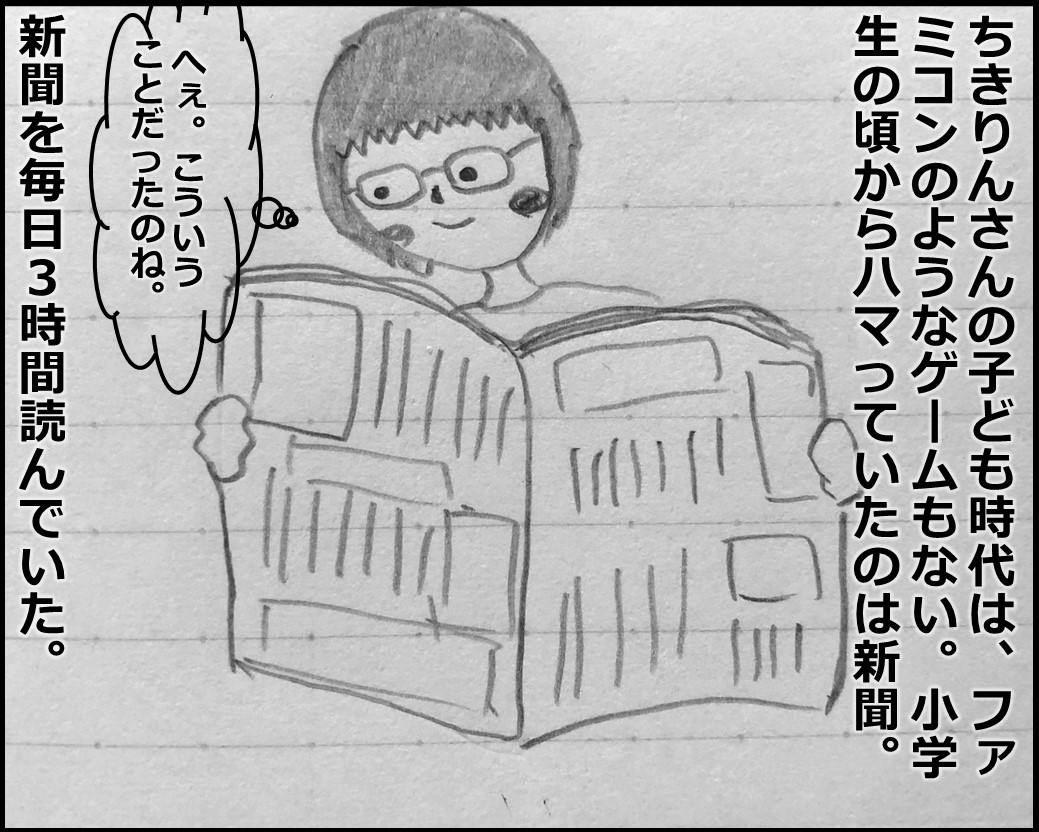 ちきりんさんの子ども時代は、ファ
ミコンのようなゲームもない。小学
生の頃からハマっていたのは新聞。
へぇ。こういう
ことだったのね。
新聞を毎日3時間読んでいた。